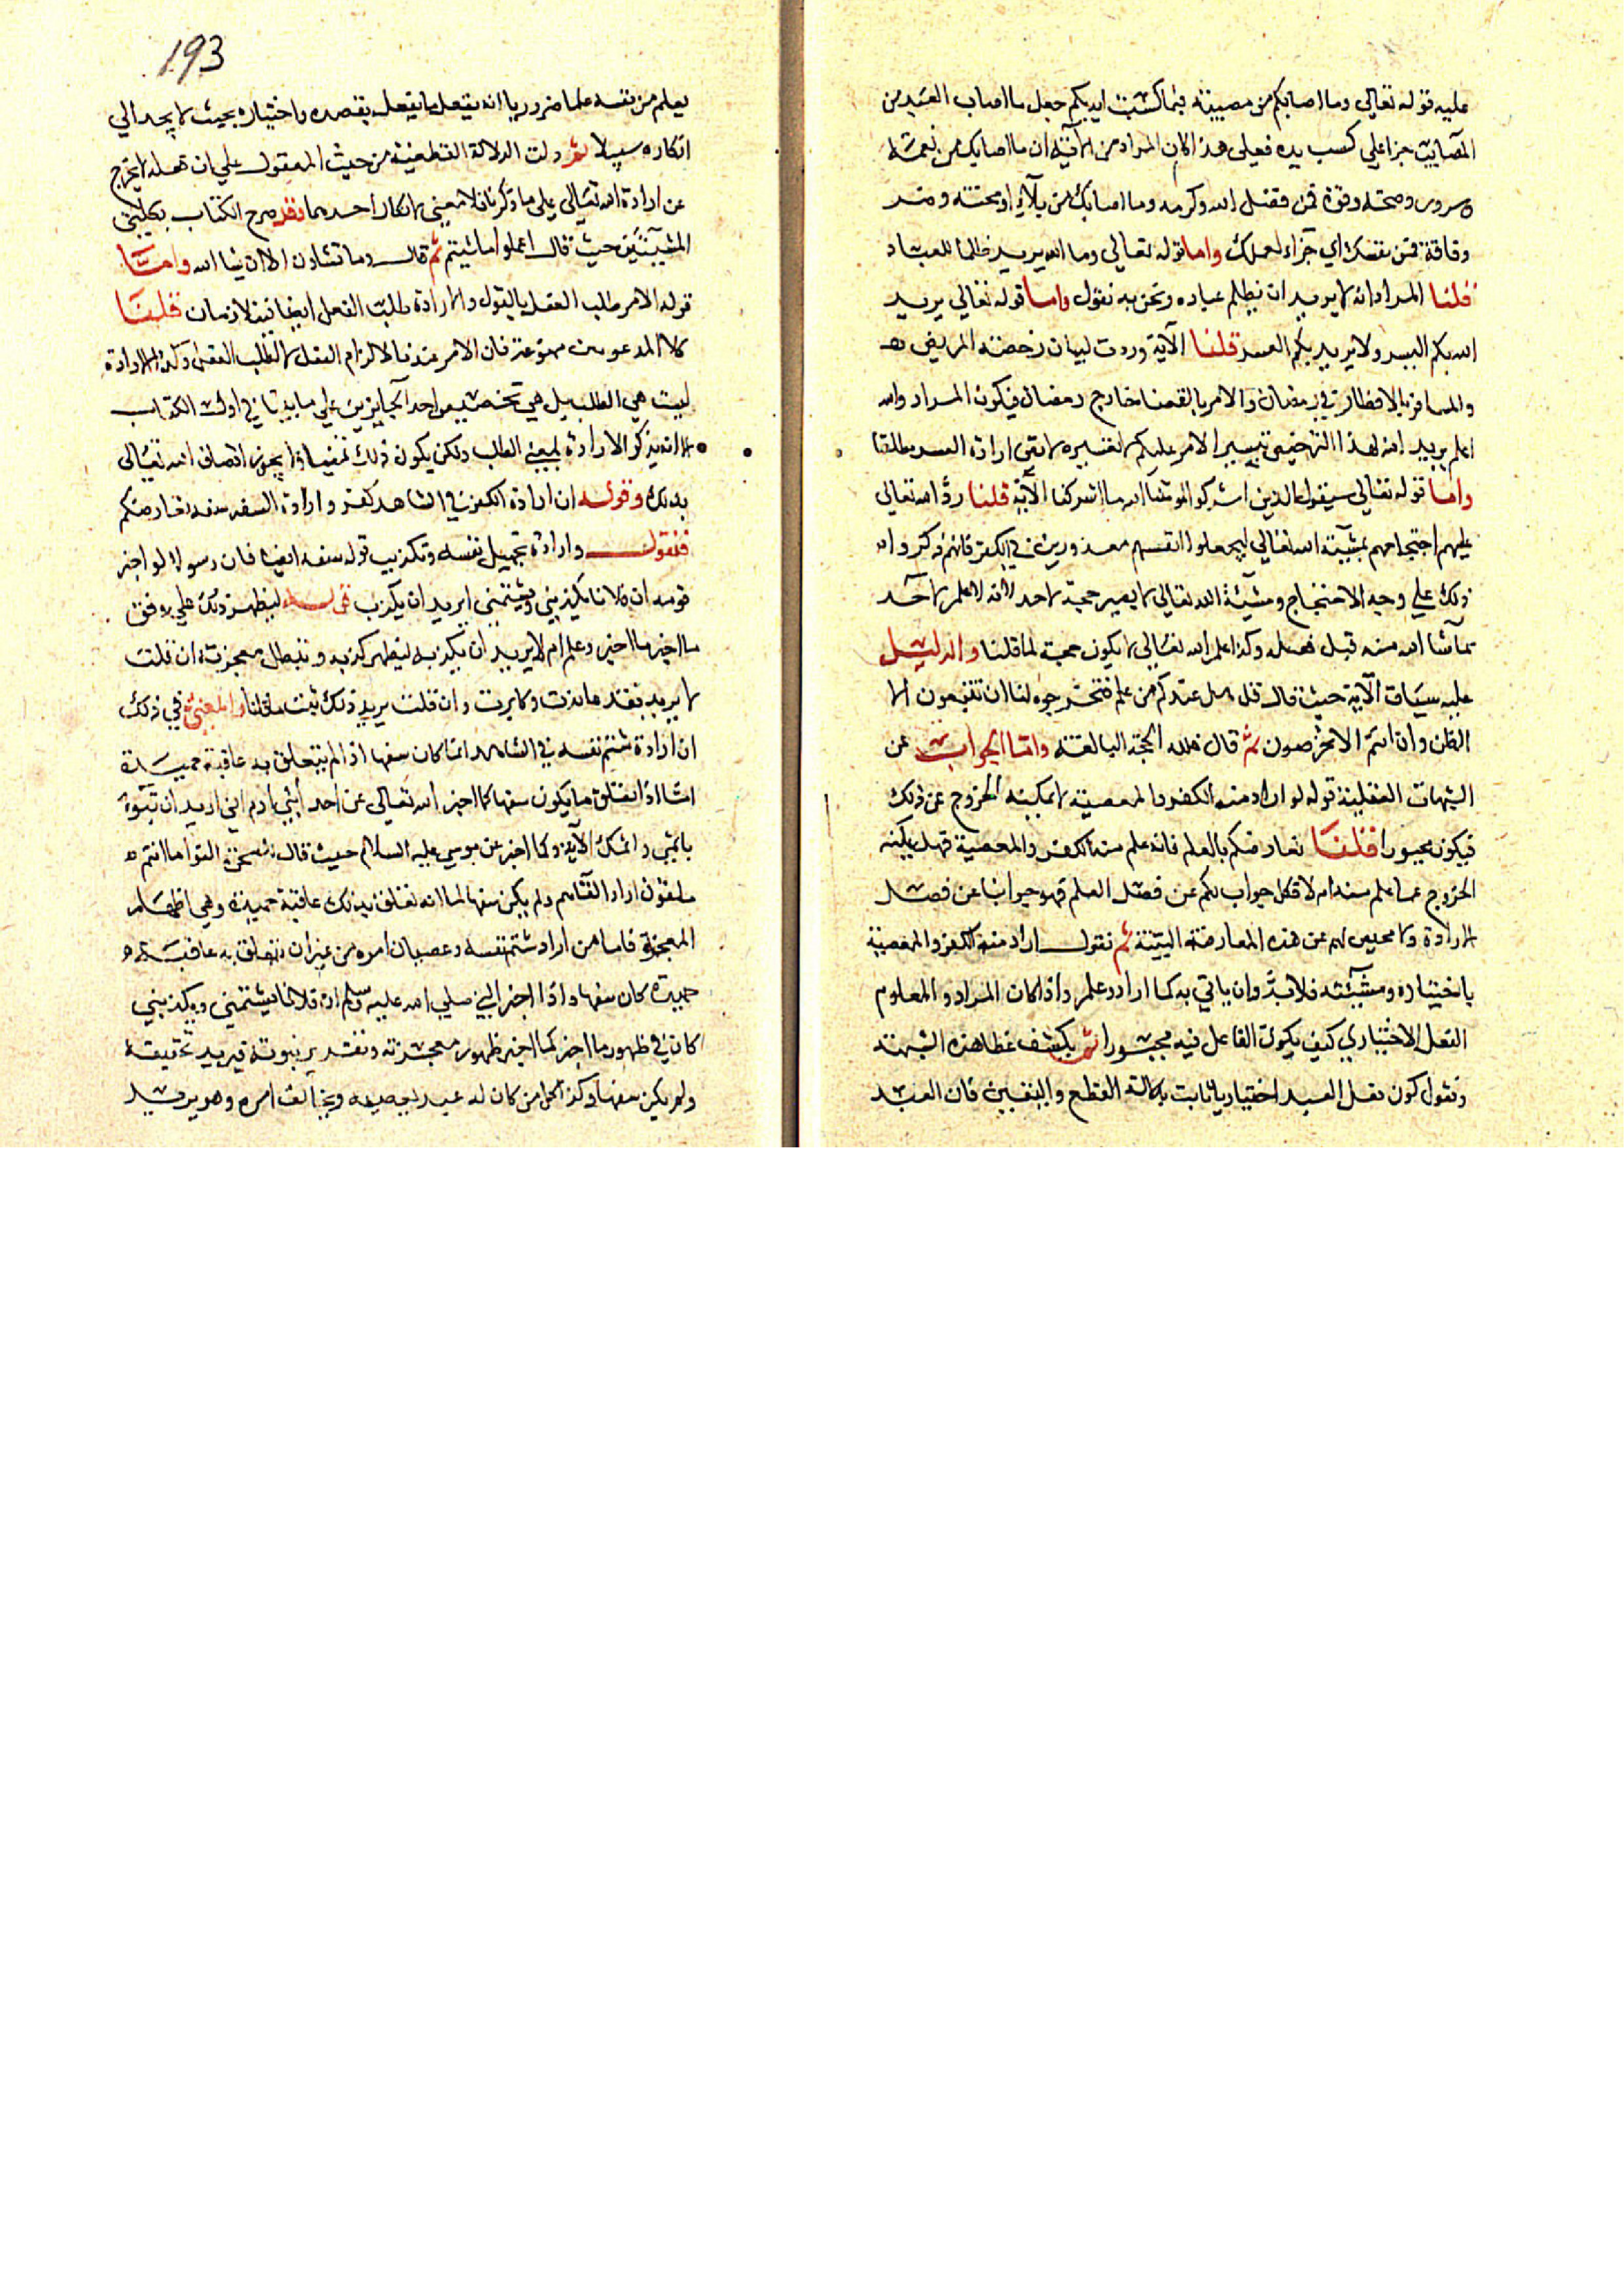 عليه قوله تعالى وما اصابكم من مصيبة فبما كسبت ايديكم جعل ما اصاب العبد من
المصايب جزا على كسب يده فعلى هذا كان المراد من الآية ان ما اصابك من نعمة
وسرور وصحة وقوة فمن فضل الله وكرمه وما اصابك من بلاء او محنة وضر
وفاقة فمن نفسك اي جزاء لعملك واما قوله تعالى وما الله يريد ظلما للعباد
قلنا المراد انه لا يريد ان يظلم عباده ونحن به نقول واما قوله تعالى يريد
الله بكم اليسر ولا يريد بكم العسر قلنا الآية وردت لبيان رخصة المريض
والمسافر بالافطار في رمضان والامر بالقضا خارج رمضان فيكون المراد والله
اعلم يريد الله لهذا الترخيص تيسير الامر عليكم لا تعسيره لا نفى ارادة العسر مطلقا
واما قوله تعالى سيقول الذين اشركوا لو شا الله ما اشركنا الآية قلنا رد الله تعالى
عليهم احتجاجهم بمشيئة الله تعالى ليجعلوا انفسهم معذورين في الكفر فانهم ذكروا
ذلك على وجه الاحتجاج ومشيئة الله تعالى لا يصير حجة لاحد لانه لا علم لاحد
بما شا الله منه قبل فعله وكذا علم الله تعالى لا يكون حجة لما قلنا والدليل
عليه سياق الآية حيث قال قل هل عندكم من علم فتخرجوه لنا ان تتبعون الا
الظن وان انتم الا تخرصون ثم قال فلله الحجة البالغة واما الجواب عن
الشبهات العقلية قوله لو اراد منه الكفر والمعصية لا يمكنه الخروج عن ذلك
فيكون مجبورا فقلنا نعارضكم بالعلم فانه علم منه الكفر والمعصية فهل يمكنه
الخروج عما علم منه ام لا فكل جواب لكم عن فصل العلم فهو جوابنا عن فصل
الارادة ولا محيص لهم عن هذه المعارضة البتة ثم نقول اراد منه الكفر والمعصية
باختياره ومشيئته فلا بد وان ياتي به كما اراد وعلم واذا كان المراد والمعلوم
الفعل الاختياري كيف يكون الفاعل فيه مجبورا ثم يكشف غطا هذه الشبهة
ونقول كون فعل العبد اختياريا ثابت بدلالة القطع واليقين فان العبد
193
يعلم من نفسه علما ضروريا انه يفعل ما يفعل بقصده واختياره بحيث لا يجد الي
انكاره سبيلا ثم دلت الدلالة القطعية من حيث المعقول على ان فعله لا يخرج
عن ارادة الله تعالى على ما ذكرنا فلا معنى لانكار احدهما فقد صرح الكتاب بكلتي
المشيئتين حيث قال اعملوا ما شيتم ثم قال وما تشاون الا ان يشا الله واما
قوله الامر طلب الفعل بالقول والارادة طلب الفعل ايضا فيتلازمان قلنا
كلا المدعوين ممنوعة فان الامر عندنا لالزام الفعل لا لطلب الفعل وكذا الارادة
ليست هي الطلب بل هي تخصيص احد الجايزين على ما بينا في اول الكتاب
الا انه يذكر الارادة بمعنى الطلب ولكن يكون ذلك تمنيا ولا يجوز اتصاف الله تعالى
بذلك وقوله ان ارادة الكفر في الشاهد كفر وارادة السفه سفه نعارضكم
فنقول وارادة تجهيل نفسه وتكذيب قوله سفه ايضا فان رسولا لو اخبر
قومه ان فلانا يكذبني ويشتمني ايريد ان يكذب ليظهر ذلك على وفق
ما اخبر ما اخبر وعلم ام لا يريد ان يكذبه ليظهر كذبه وتبطل معجزته ان قلت
لا يريد فقد عاندت وكابرت وان قلت يريد ذلك ثبت ما قلنا والمعنى في ذلك
ان ارادة شتم نفسه في الشاهد انما كان سفها اذا لم يتعلق به عاقبة حميدة
اما اذا تعلق ما يكون سفها كما اخبر الله تعالى عن احد ابني ادم اني اريد ان تبوء
باثمي واثمك الآية وكما اخبر عن موسى عليه السلام حيث قال للسحرة القوا ما انتم
ملقون اراد القاهم ولم يكن سفها لما انه تعلق بذلك عاقبة حميدة وهي اظهار
المعجزة فاما من اراد شتم نفسه وعصيان امره من غير ان تتعلق به عاقبة
حميدة كان سفها واذا اخبر النبي صلى الله عليه وسلم ان فلانا يشتمني ويكذبني
كان في ظهور ما اخبر كما اخبر ظهور معجزته وتقدير نبوته فيريد تحقيقه
ولم يكن سفها وكذا كل من كان له عبد يعصيه ويخالف امره وهو يريد